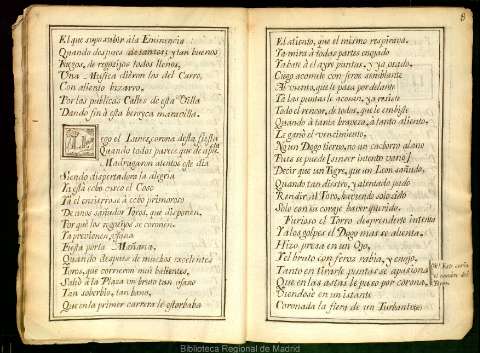 El que supo subir à la Eminencia
Quando despues de tantos, y tan buenos
Fuegos, de regozijos todos llenos,
Una Musica dieron los del Carro,
Con aliento bizarro,
Por las publicas Calles de esta Villa
Dando fin à esta heroyca maravilla.
el Lunes, corona desta fiesta
Quando todos parece que
Madrugaron atentos este dia
Siendo despertadora la alegria
Ya està echo circo el Coso
Ya el encierro à echo primoroso
De unos sañudos Toros, que disponen,
Por que los regozijos se coronen.
Ya previenen, ufana
Fiesta por la Mañana,
Quando despues de muchos excelentes
Toros, que corrieron mui valientes,
Saliò à la Plaza un bruto tan ufano
Tan sobervio, tan bano,
Que en la primer carrera le estorbaba
8
El aliento, que el mismo respirava.
Ya mira à todas partes enojado
Ya bate à el ayre puntas, y ya osado,
Luego acomete con feroz semblante
Al viento, que le passa por delante
Ya las puntas le acosan, ya rañete
Todo el rencor, de todos, que le embiste
Quando à tanta braveza, à tanto aliento,
Le ganò el vencimiento,
No un Dogo tierno, no un cachorro alano
Pues se puede
Decir que un Tigre, que un Leon sañudo,
Quando tan diestro, y alentado pudo
Rendir, al Toro, haviendo sido
Solo con su corage haver querido.
Furioso el Toro desprenderse intenta
Ya los golpes el Dogo mas se alienta,
Hizo presa en un Ojo,
Y el bruto con feroz rabia, y enojo,
Tanto en tirarle puntas se apasiona
Que en las astas le puso por corona,
Viendose en un istante
Coronada la fiera de un Turbante
Biblioteca Regional de Madrid